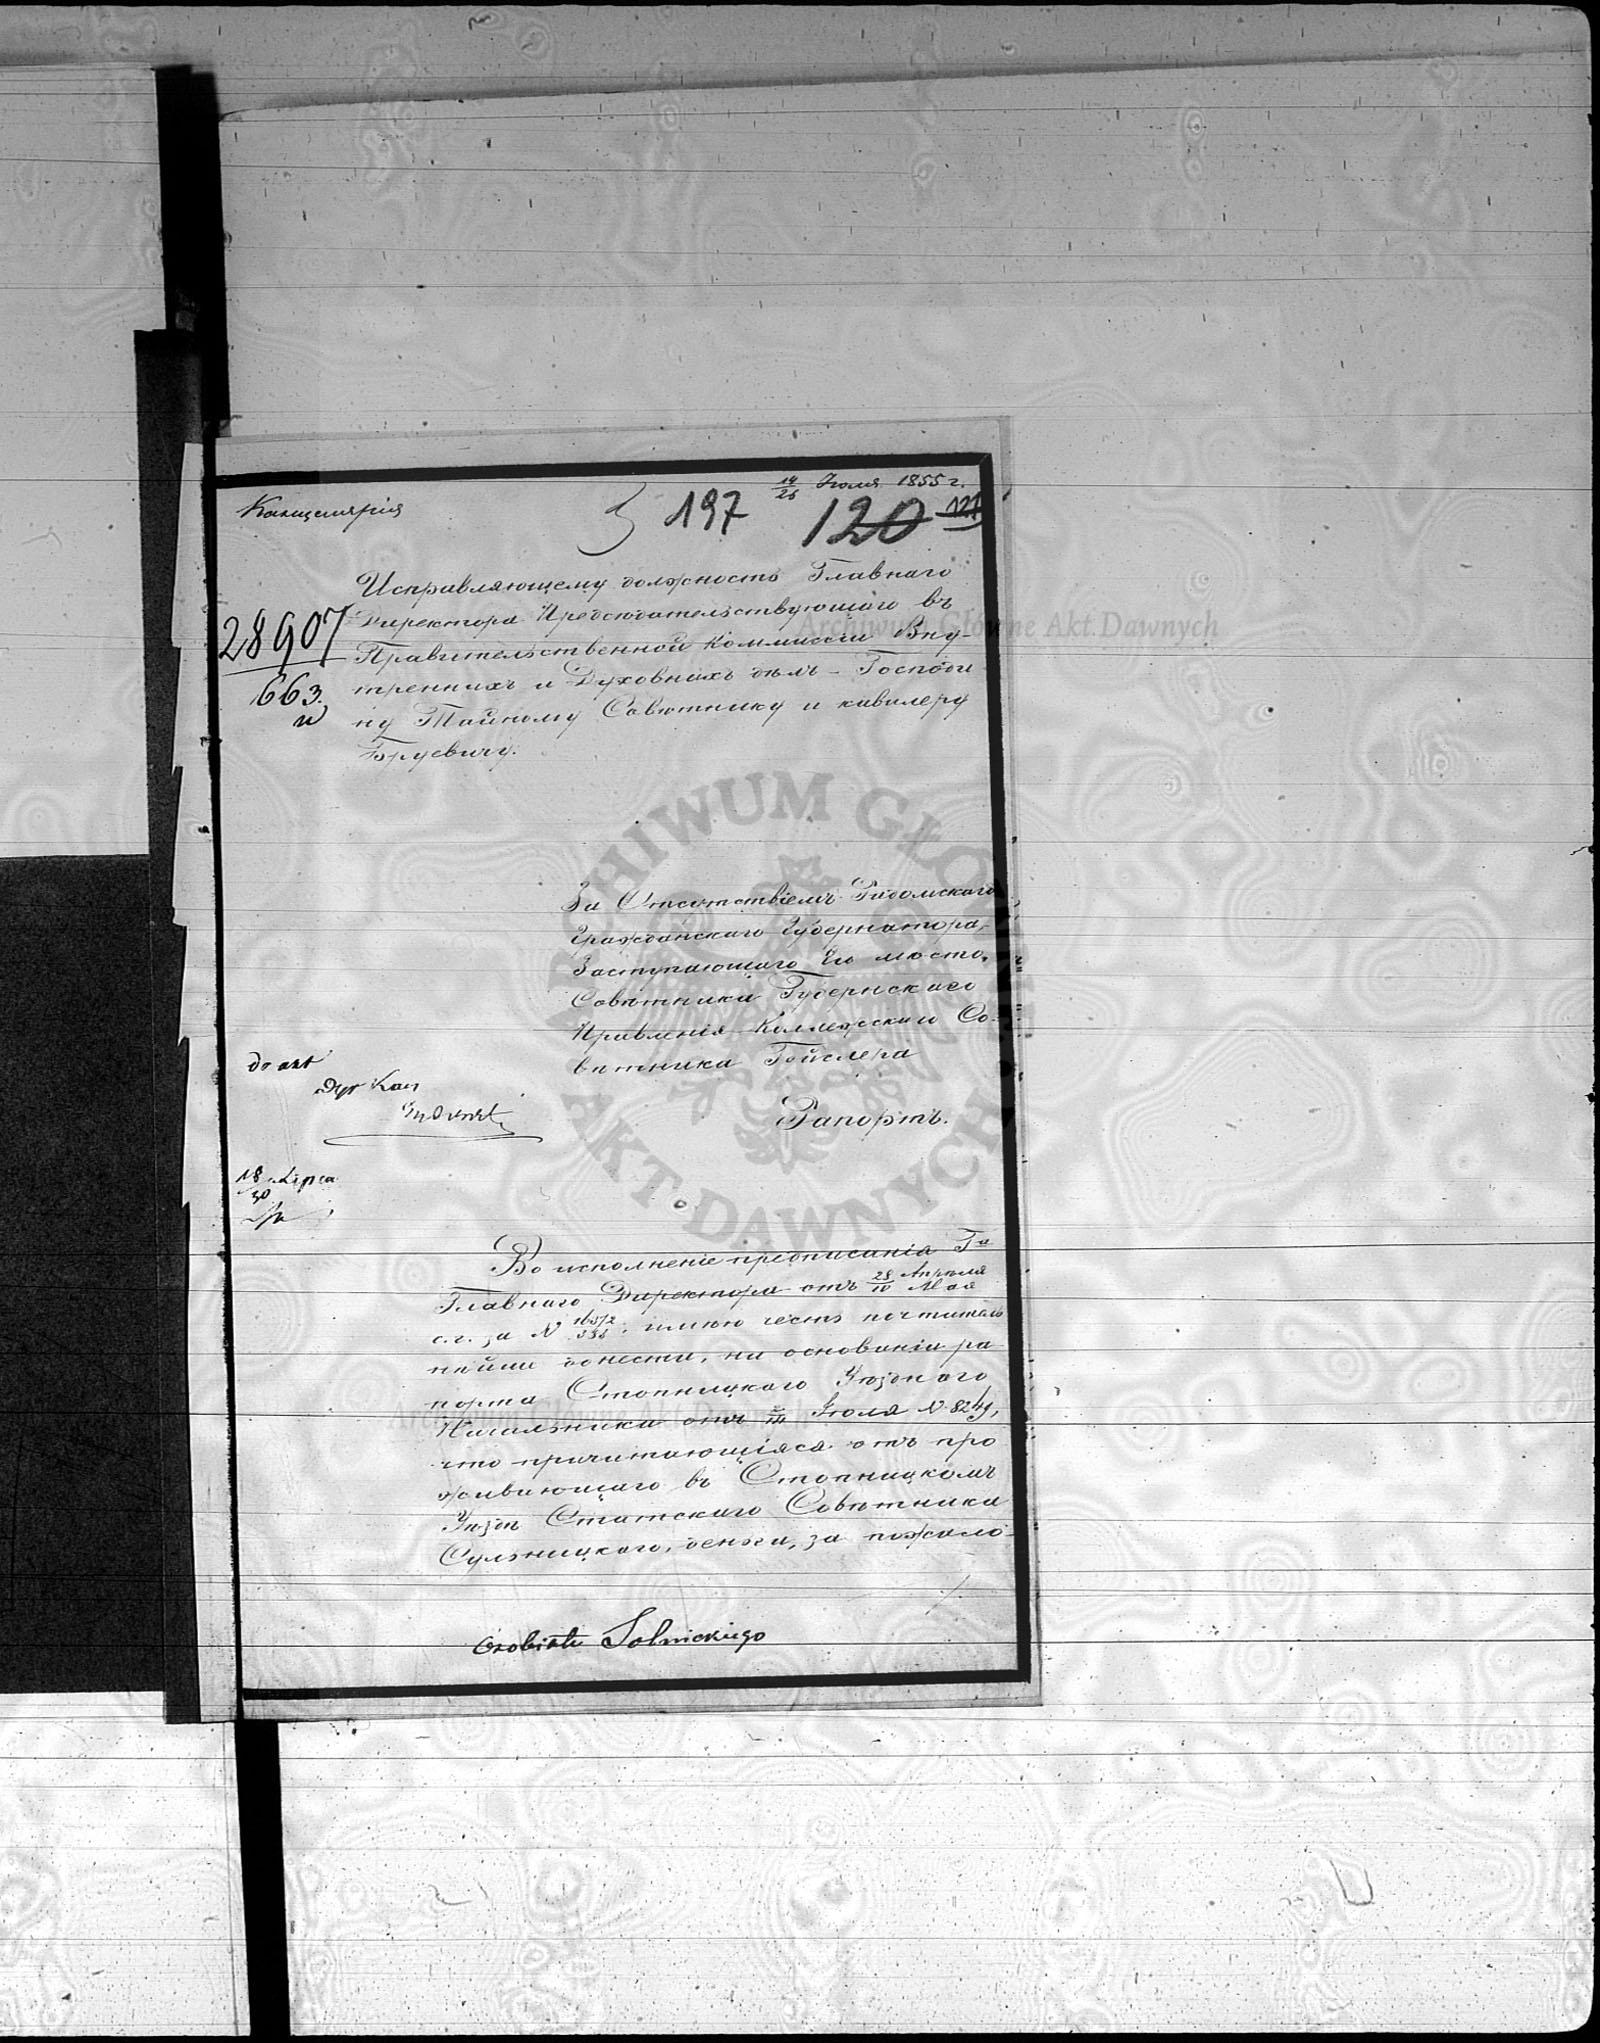 14/26 Іюля 1855 г.
Канцелярія
197 120 121
Исправляющему должность Главнаго
Директора Предсѣдательствующаго въ
28907
Правительственной Коммиссіи Вну
663
треннихъ и Духовныхъ дѣлъ – Господи
ну Тайному Совѣтнику и кавалеру
Бруевичу.
За Отсутствіемъ Радомскаго
Гражданскаго Губернатора,
Заступающаго Его мѣсто,
Совѣтника Губернскаго
Правленія Коллежскаго Со-
вѣтника Гейслера
do akt
Dyr Kan
Рапортъ.
18/30 Lipca
Во исполненіе предписанія Га
Главнаго Директора отъ 28/10 Апрѣля/Мая
с.г. за N 16572/338, имѣю честь почтитель
нѣйше донести, на основаніи ра
порта Стопницкаго Уѣзднаго
Начальника отъ Іюля N. 8249,
что причитающіяся отъ про
живающаго въ Стопницкомъ
Уѣздѣ Статскаго Совѣтника
Сульницкаго, деньги, за пожало-
osobiste Solnickiego
Archiwum Główne Akt Dawnych
ARCHIWUM GŁÓWNE AKT DAWNYCH